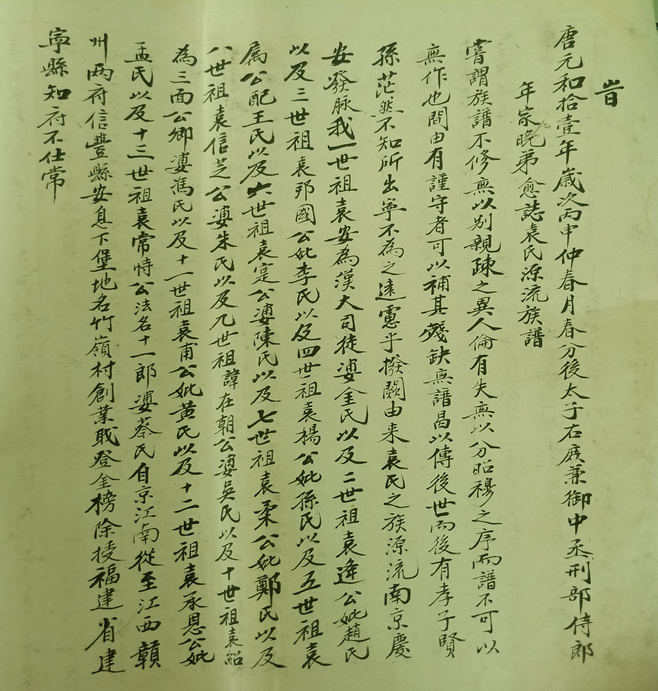 旹
唐元和拾壹年歲次丙申仲春月春分後太子右庶兼御中丞刑部侍郎
年家晚弟愈誌袁氏源流族譜
嘗謂族譜不修無以別親疎之異人倫有失無以分昭穆之序而譜不可以
無作也間由有謹守者可以補其殘缺無譜曷以傳後世而後有孝子賢
孫茫然不知所出寧不為之遠慮乎撥闗由来袁氏之族源流南京慶
安發脉我一世祖袁安為漢大司徒婆金氏以及二世祖袁逄公妣趙氏
以及三世祖袁邦國公妣李氏以及四世祖袁楊公妣孫氏以及五世祖袁
属公配王氏以及六世祖袁寔公婆陳氏以及七世祖袁柔公妣鄭氏以及
八世祖袁信芝公婆朱氏以及九世祖諱在朝公婆吳氏以及十世祖袁紹
為三面公鄉婆馮氏以及十一世祖袁甫公妣黃氏以及十二世祖袁承恩公妣
孟氏以及十三世祖袁常恃公法名十一郎婆蔡氏自京江南從至江西贛
州两府信豐縣安息下堡地名竹嶺村創業戝登金榜除授福建省建
寧縣知府不仕常